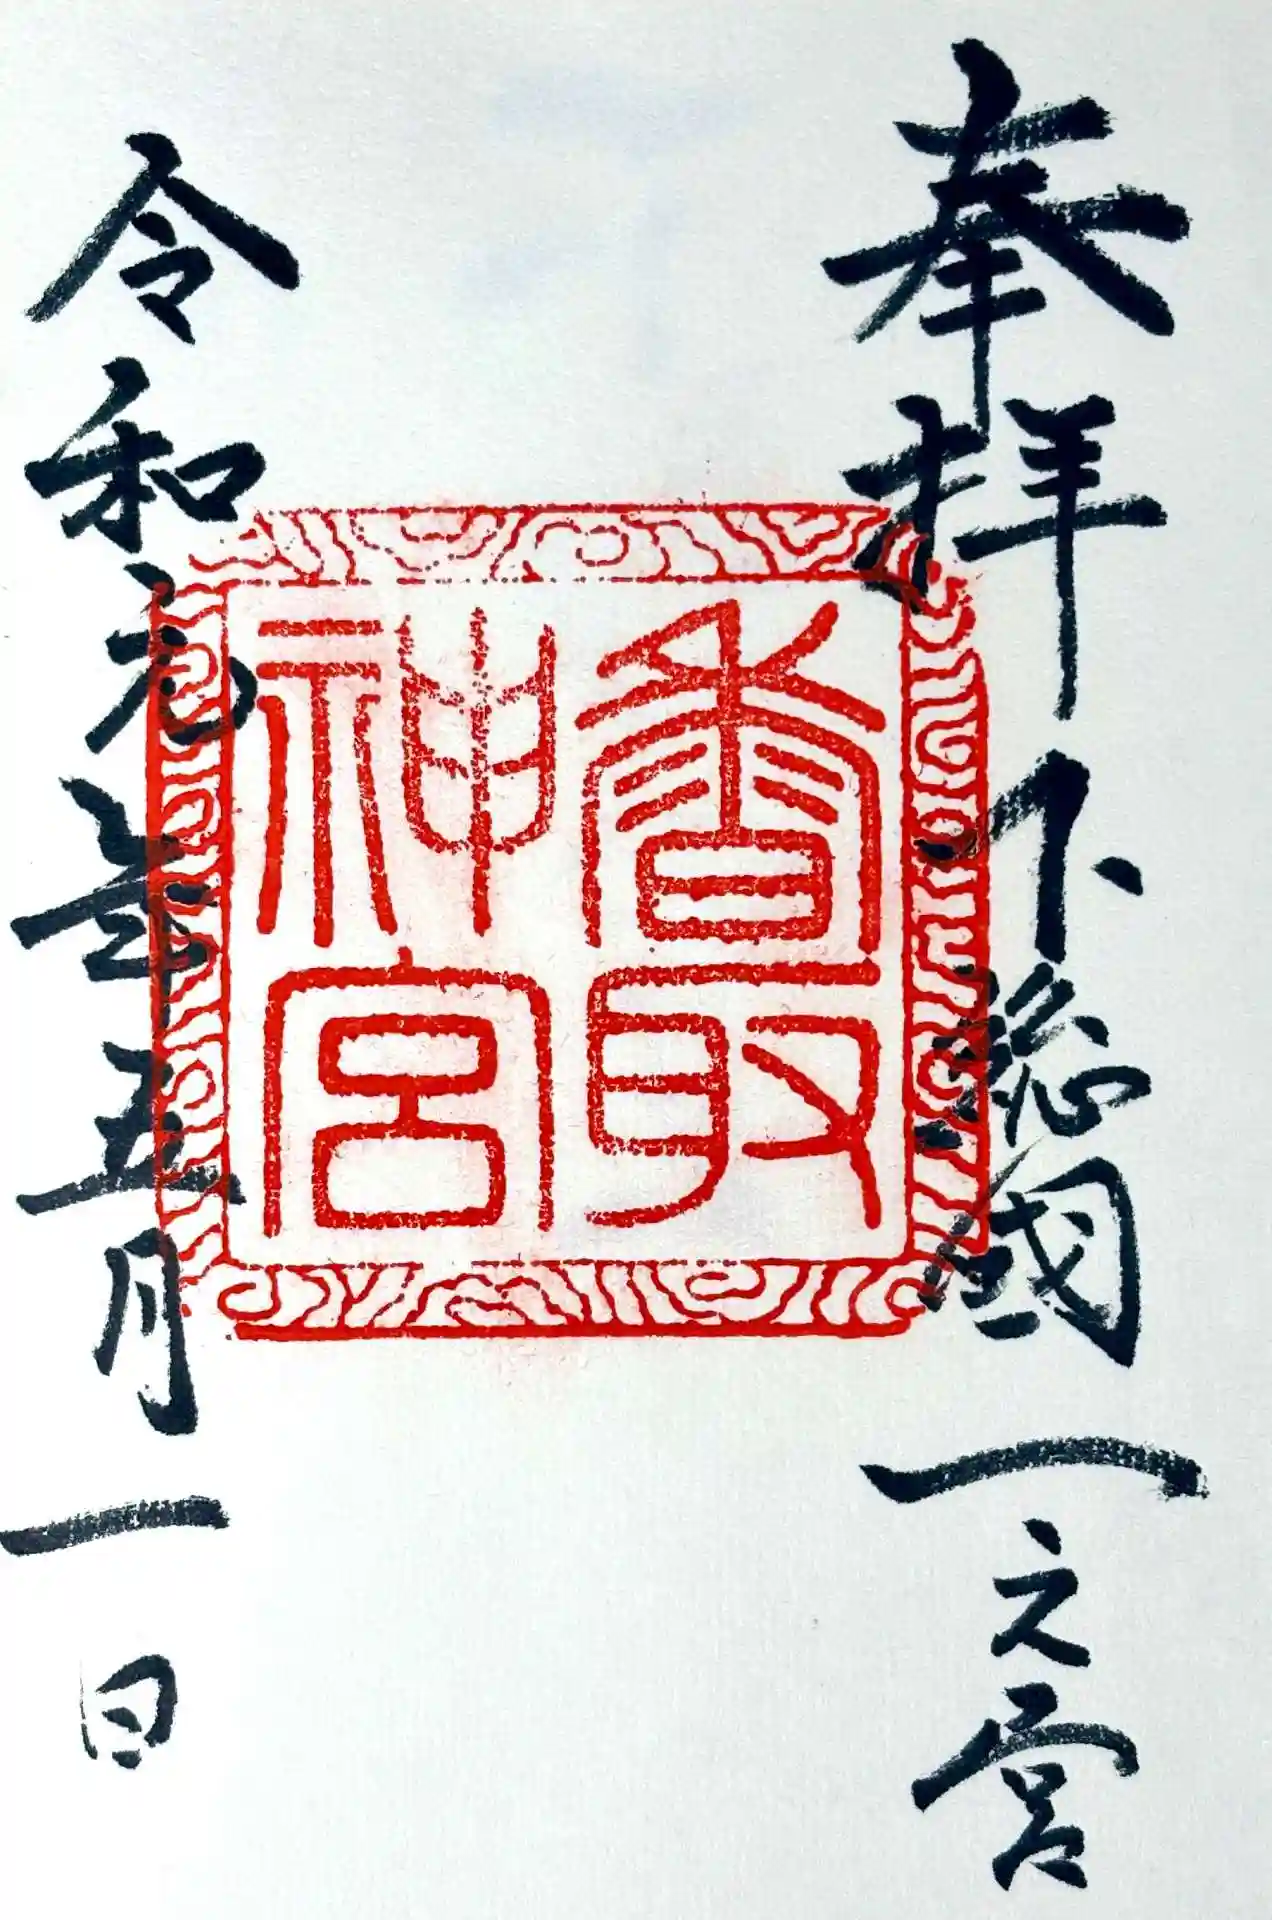 奉拝 下総國一之宮
香取
神宮
令和元年五月一日